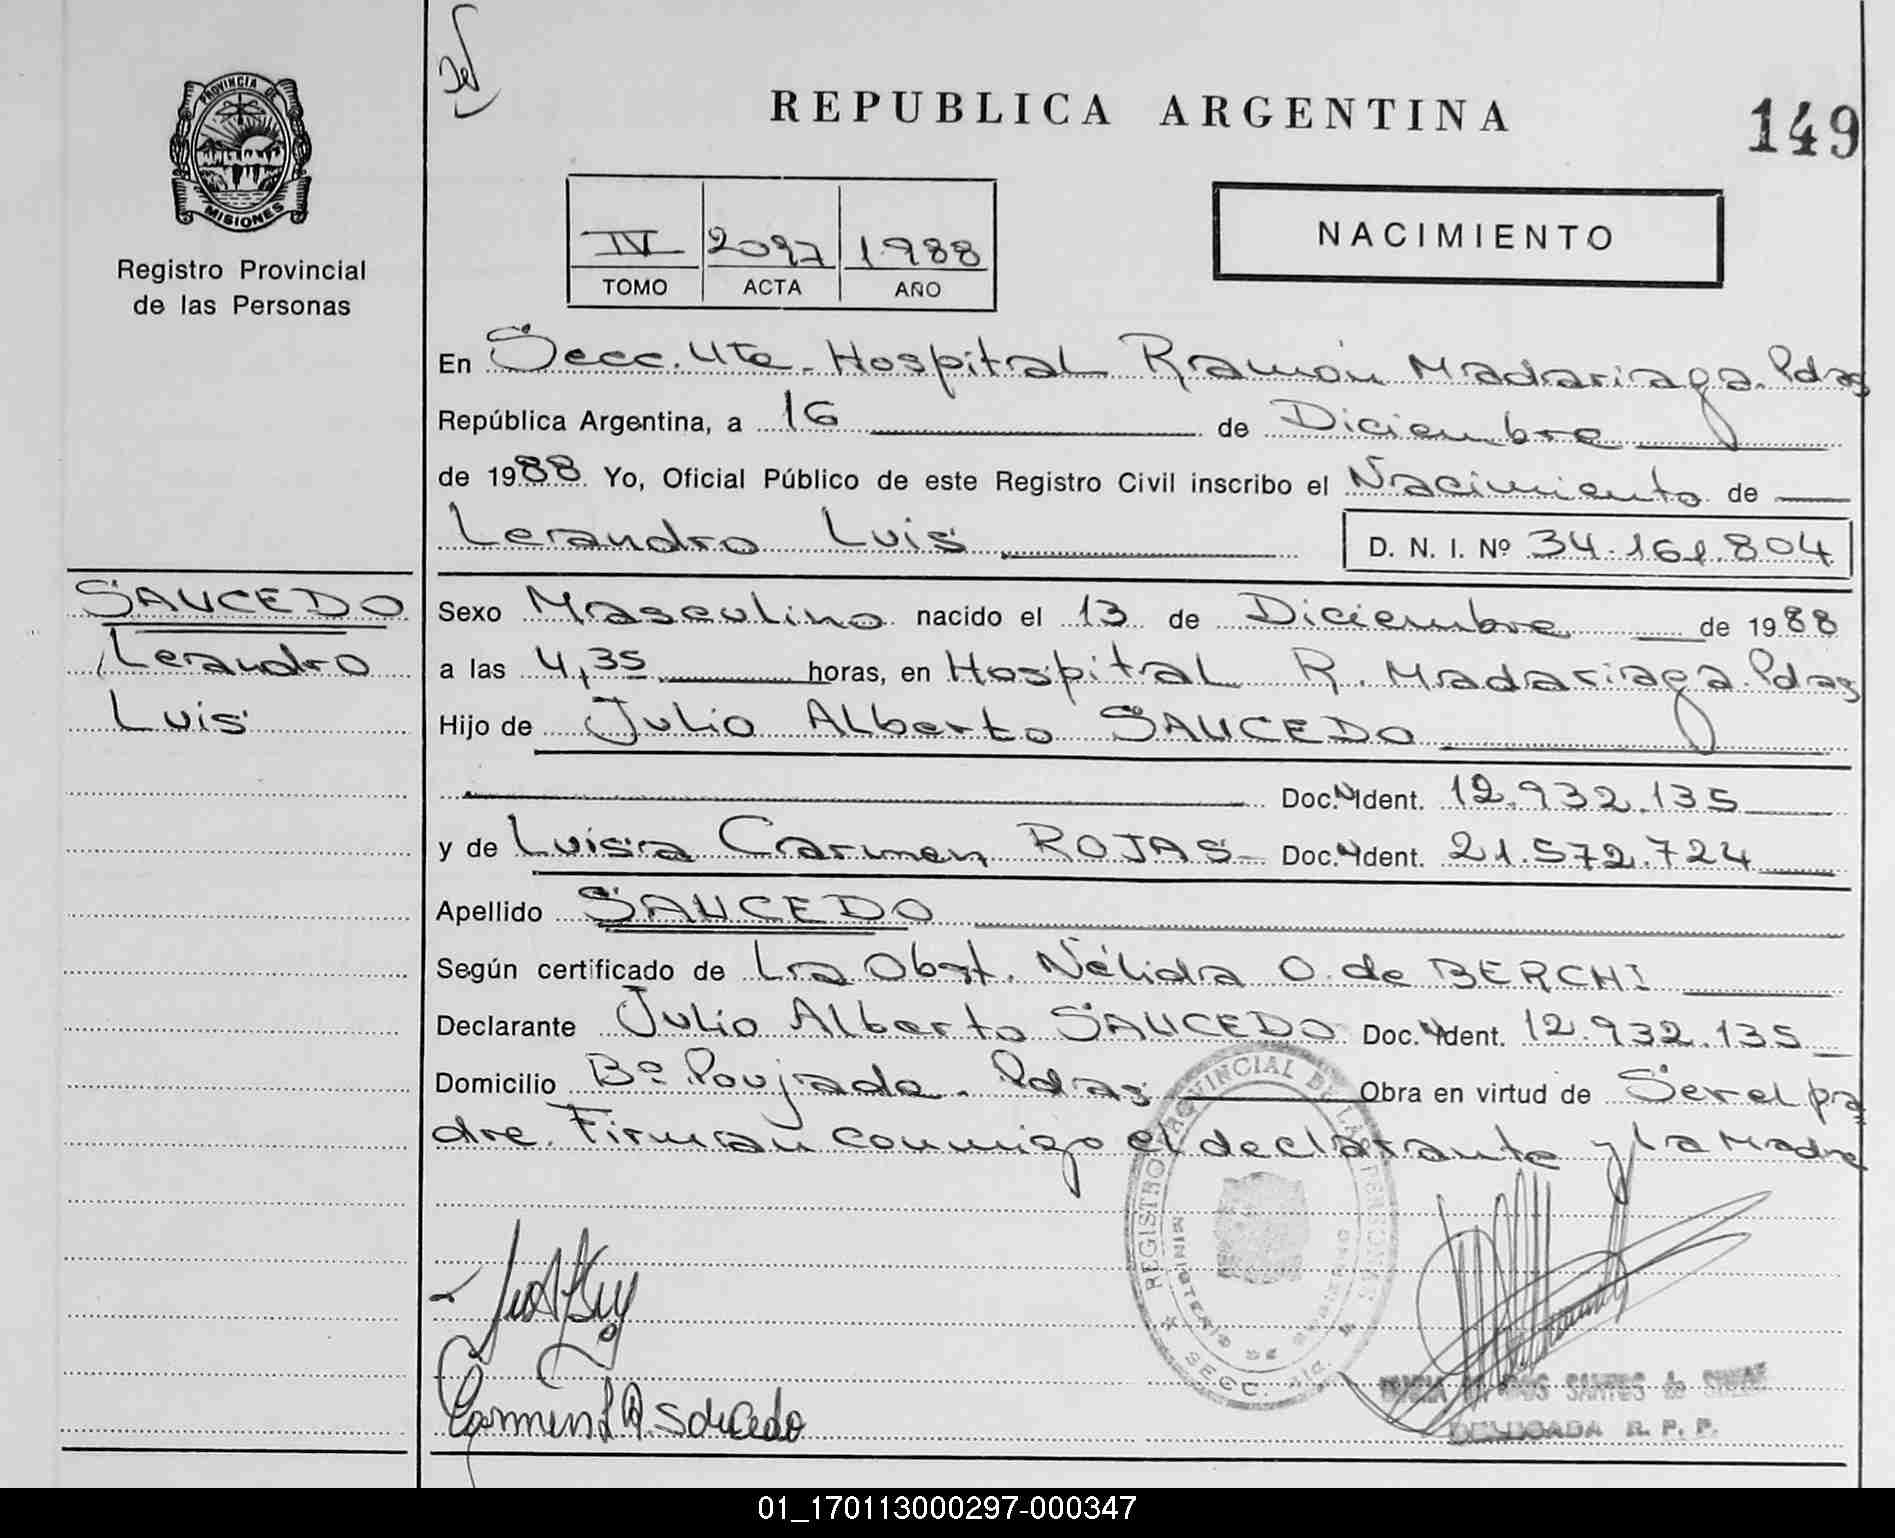 PROVINCIA DE
MISIONES
Registro Provincial
de las Personas
REPUBLICA ARGENTINA
149
IV 2097 1988
TOMO ACTA AÑO
NACIMIENTO
En Secc. 4ta. Hospital Ramón Madariaga. Pdas
República Argentina, a 16 de Diciembre
de 1988 Yo, Oficial Público de este Registro Civil inscribo el Nacimiento de
Leandro Luis D. N. I. Nº 34.161.804
SAUCEDO
Leandro
Luis
Sexo Masculino nacido el 13 de Diciembre de 1988
a las 4,35 horas, en Hospital R. Madariaga. Pdas
Hijo de Julio Alberto SAUCEDO
Doc. Ident. 12.932.135
y de Luisa Carmen ROJAS Doc. Ident. 21.572.724
Apellido SAUCEDO
Según certificado de La Obst. Nélida O. de BERCHI
Declarante Julio Alberto SAUCEDO Doc. Ident. 12.932.135
Domicilio Bº Poujade. Pdas Obra en virtud de Ser el pa
dre. Firman conmigo el declarante y la Madre
REGISTRO PROVINCIAL DE LAS PERSONAS
MINISTERIO DE GOBIERNO
SECC. 4ta.
Carmen L R. Saucedo
DOS SANTOS de
DELEGADA R. P. P.
01_170113000297-000347